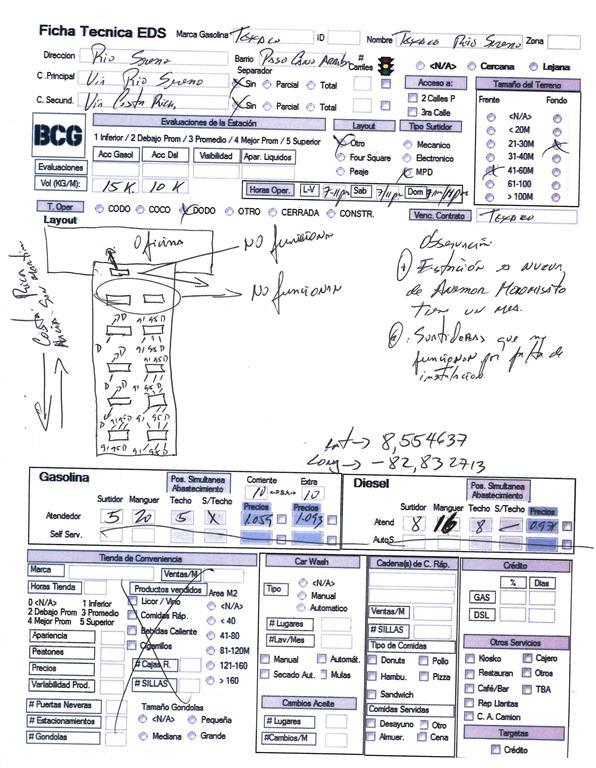 Ficha Tecnica EDS Marca Gasolina Texaco ID Nombre Texaco Rio Sereno Zona
Direccion Rio Sereno Barrio Paso Canoa Arriba # Carriles <N/A> Cercana Lejana
C.Principal Via Rio Sereno Separador X Sin Parcial Total
C. Secund. Via Costa Rica X Sin Parcial Total
Acceso a:
2 Calles P
3ra Calle
Tamaño del Terreno
Frente Fondo
<N/A>
< 20M
21-30M X
31-40M
X 41-60M
61-100
> 100M
BCG
Evaluaciones de la Estación
1 Inferior / 2 Debajo Prom / 3 Promedio / 4 Mejor Prom / 5 Superior
Acc Gasol Acc Dsl Visibilidad Apar. Liquidos
Evaluaciones
Vol (KG/M): 15K 10K
Layout
X Otro
Four Square
Peaje
Tipo Surtidor
Mecanico
Electronico
X MPD
Horas Oper. L-V 7-11pm Sab 7/11pm Dom
T. Oper CODO COCO X DODO OTRO CERRADA CONSTR. Venc. Contrato Texaco
Layout
Oficina
NO funcionan
NO funcionan
Costa Rica
D 91 95 D
Observación
① Estación es nueva
de
tiene un mes.
② Surtidores que no
funcionan por falta de
instalacion.
Lat → 8,554637
Long → -82,832713
Gasolina
Pos. Simultanea Abastecimiento
Corriente Extra
10 <-P.S.A.-> 10
Surtidor Manguer Techo S/Techo Precios Precios
Atendedor 5 20 5 X 1.059 1.093
Self Serv.
Diesel
Pos. Simultanea Abastecimiento
Surtidor Manguer Techo S/Techo Precios
Atend 8 16 8 —
AutoS
Tienda de Conveniencia
Marca Ventas/M
Horas Tienda
0 <N/A> 1 Inferior
2 Debajo Prom 3 Promedio
4 Mejor Prom 5 Superior
Apariencia
Peatones
Precios
Variabilidad Prod.
# Puertas Neveras
# Estacionamientos
# Gondolas
Productos vendidos
Licor / Vino
Comidas Ráp.
Bebidas Caliente
Cigarrillos
# Cajas R.
# SILLAS
Area M2
<N/A>
< 40
41-80
81-120M
121-160
> 160
Tamaño Gondolas
<N/A> Pequeña
Mediana Grande
Car Wash
Tipo
<N/A>
Manual
Automatico
# Lugares
#Lav/Mes
Manual Automát.
Secado Aut. Mulas
Cambios Aceite
# Lugares
#Cambios/M
Cadena(s) de C. Ráp.
Ventas/M
# SILLAS
Tipo de Comidas
Donuts Pollo
Hambu. Pizza
Sandwich
Comidas Servidas
Desayuno Otro
Almuer. Cena
Crédito
% Dias
GAS
DSL
Otros Servicios
Kiosko Cajero
Restauran Otros
Café/Bar TBA
Rep Llantas
C. A. Camion
Targetas
Crédito